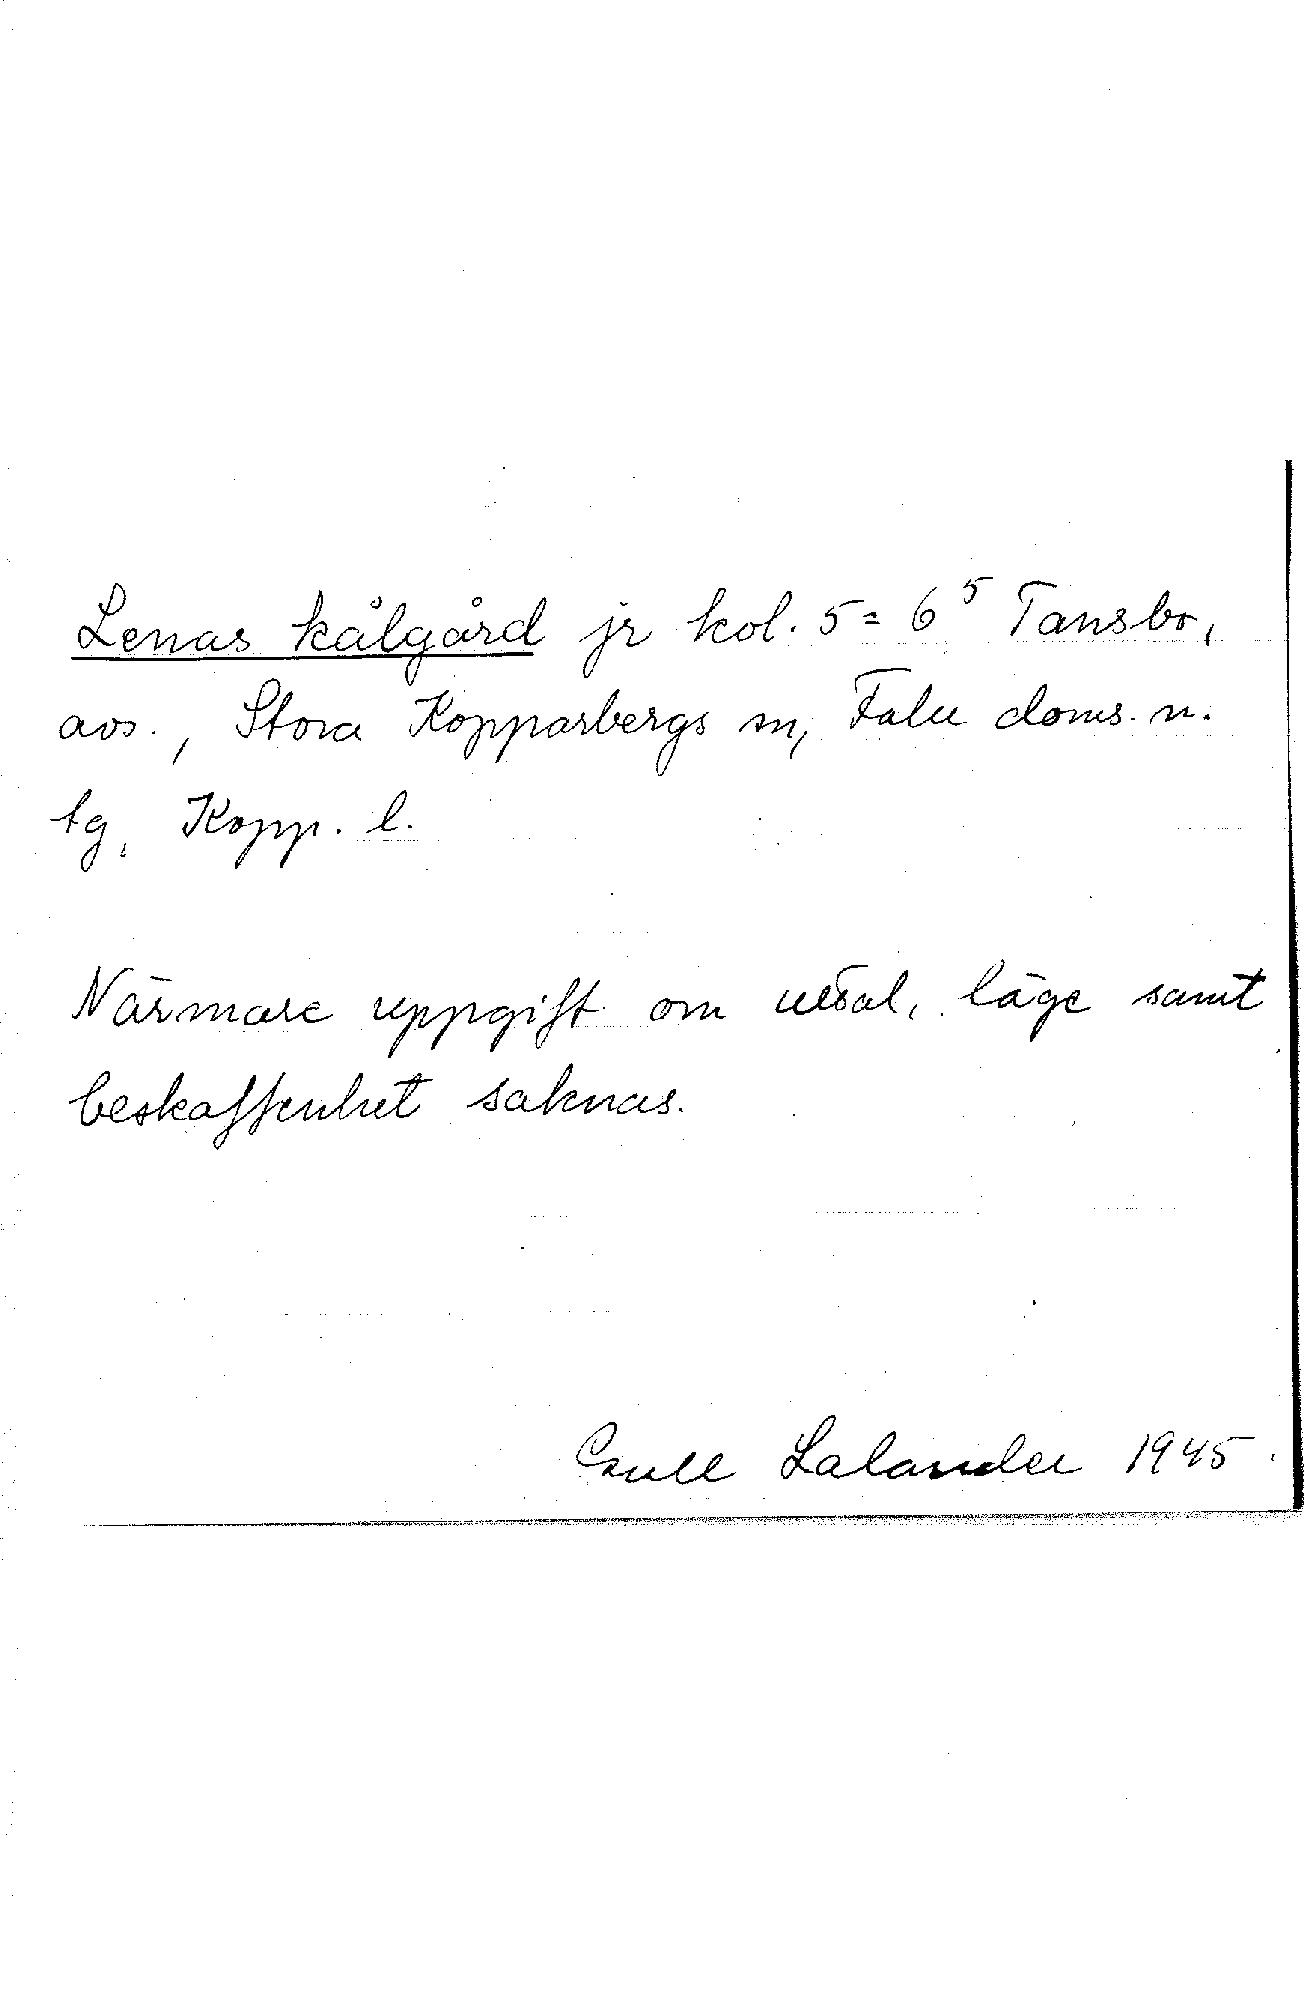 Lenas kålgård jr kol. 5 = 6⁵ Tansbo,
avs., Stora Kopparbergs sn, Falu doms. n.
tg, Kopp. l.
Närmare uppgift om uttal, läge samt
beskaffenhet saknas.
Lalander 1945.